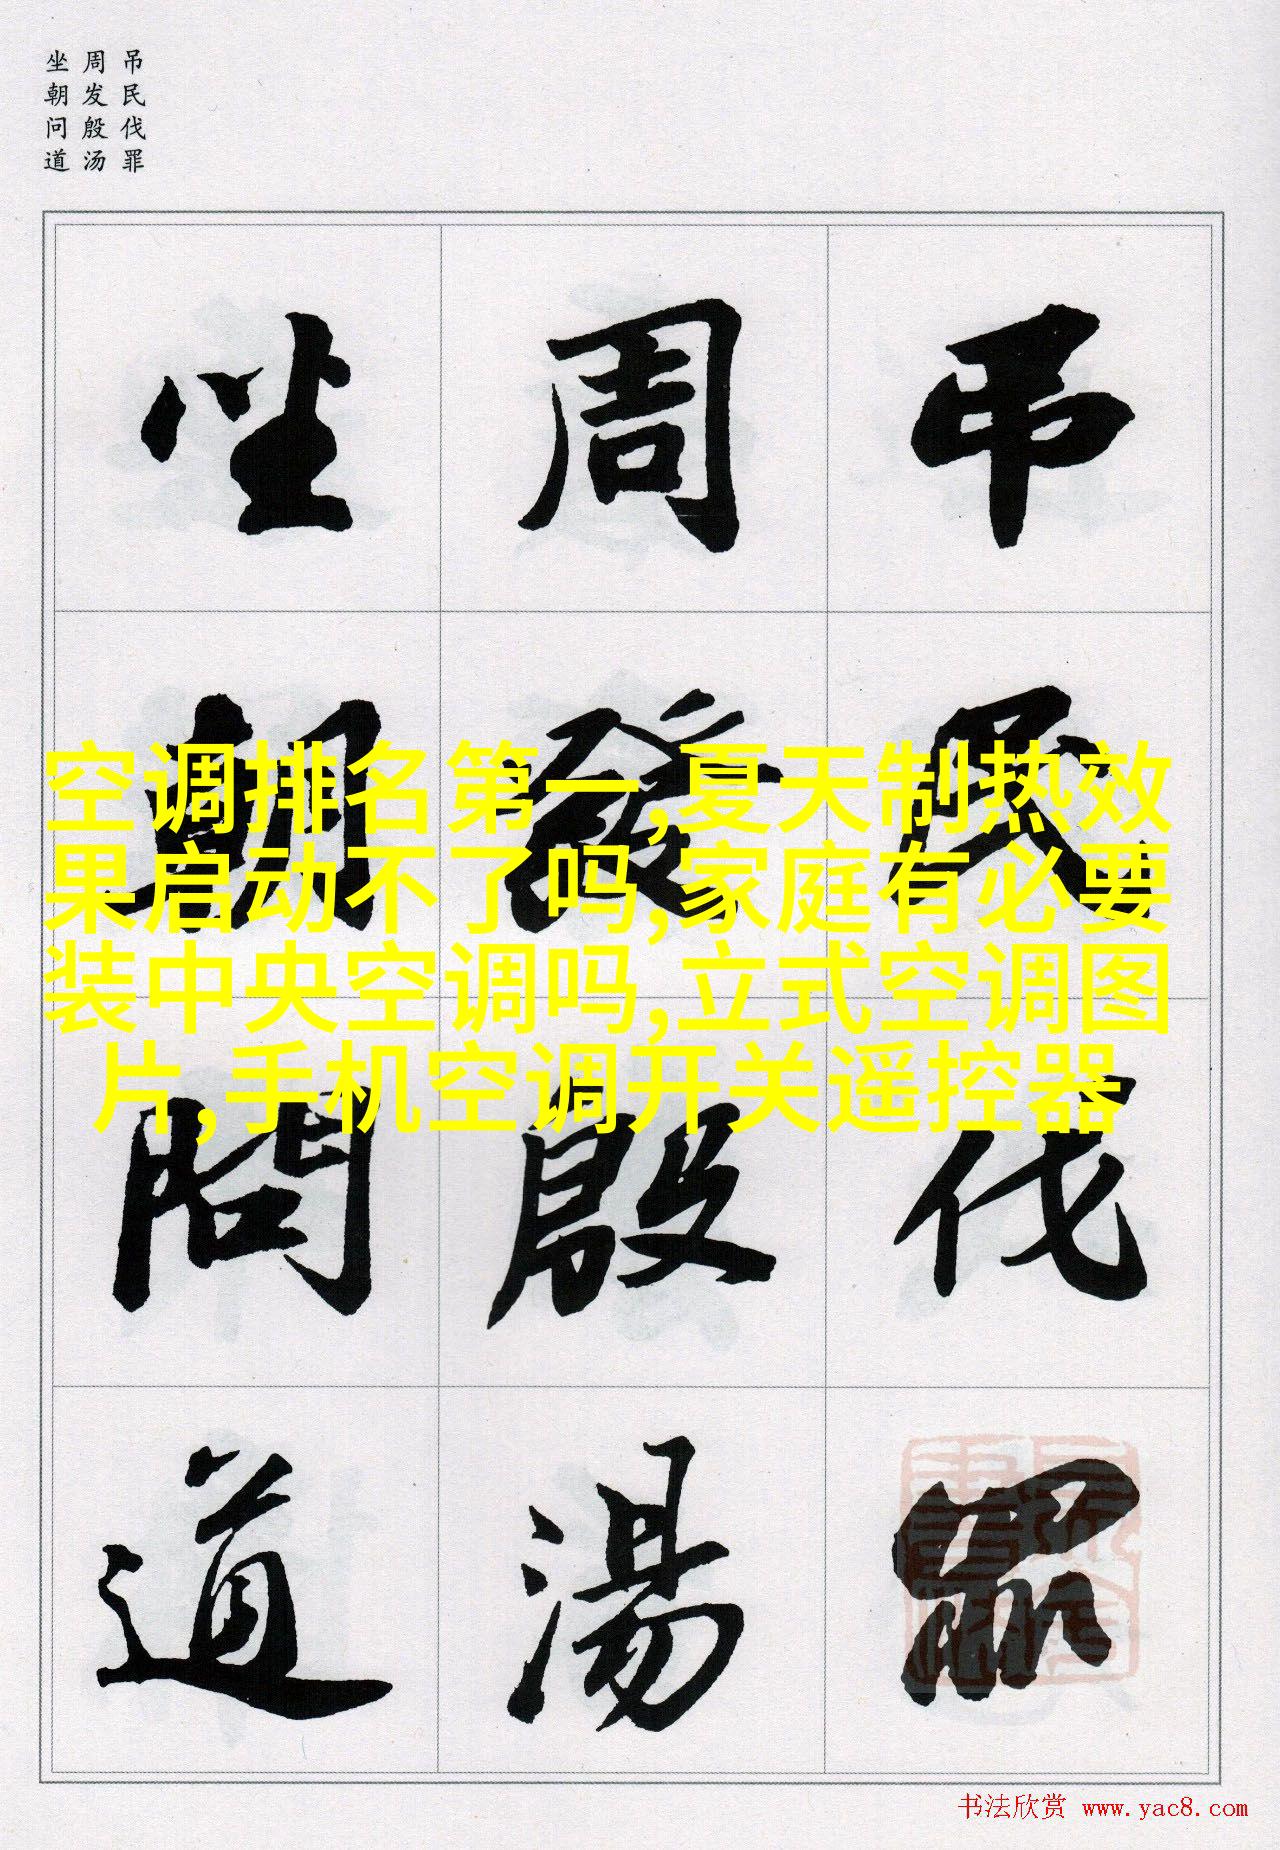 吊民伐罪
周发殷汤
坐朝问道
吊民伐罪
周發殷湯
坐朝問道
空调排名第一,夏天制热效
果启动不了吗,家庭有必要
装中央空调吗,立式空调图
片,手机空调开关遥控器
书法欣赏 www.yac8.com